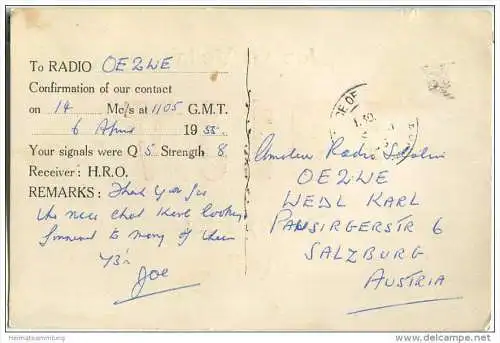 To RADIO OE2WE
Confirmation of our contact
on 14 Mc/s at 1105 G.M.T.
6 April 1955.
Your signals were Q 5 Strength 8
Receiver : H.R.O.
REMARKS: Thank you for
the nice chat Karl looking
forward to many of them
73's
Joe
Amateur Radio Station
OE2WE
WEDL KARL
PANSIRGERSTR 6
SALZBURG
AUSTRIA
Heimatsammlung
delcampe.net